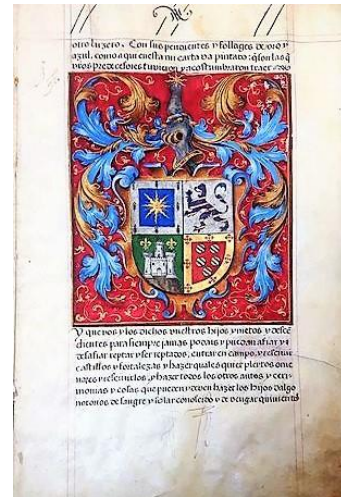 otro luzero. Con sus pendientes y follages de oro y
azul, como aqui en esta mi carta va pintado: q̄ son las q̄
vros predecesores tuvieron y acostumbraron traer
Y que vos y los dichos vuestros hijos y nietos y desçē
dientes para siempre jamas podays y puedan afiar y
desafiar reptar y ser reptados, entrar en campo, y resçebir
castillos y fortalezas y hazer quales quier pleytos ome
najes y hazer todos los otros autos y ceri
monias y cosas que pueden y deven hazer los hijos dalgo
notorios de sangre y solar conosçido y de vengar quinientos